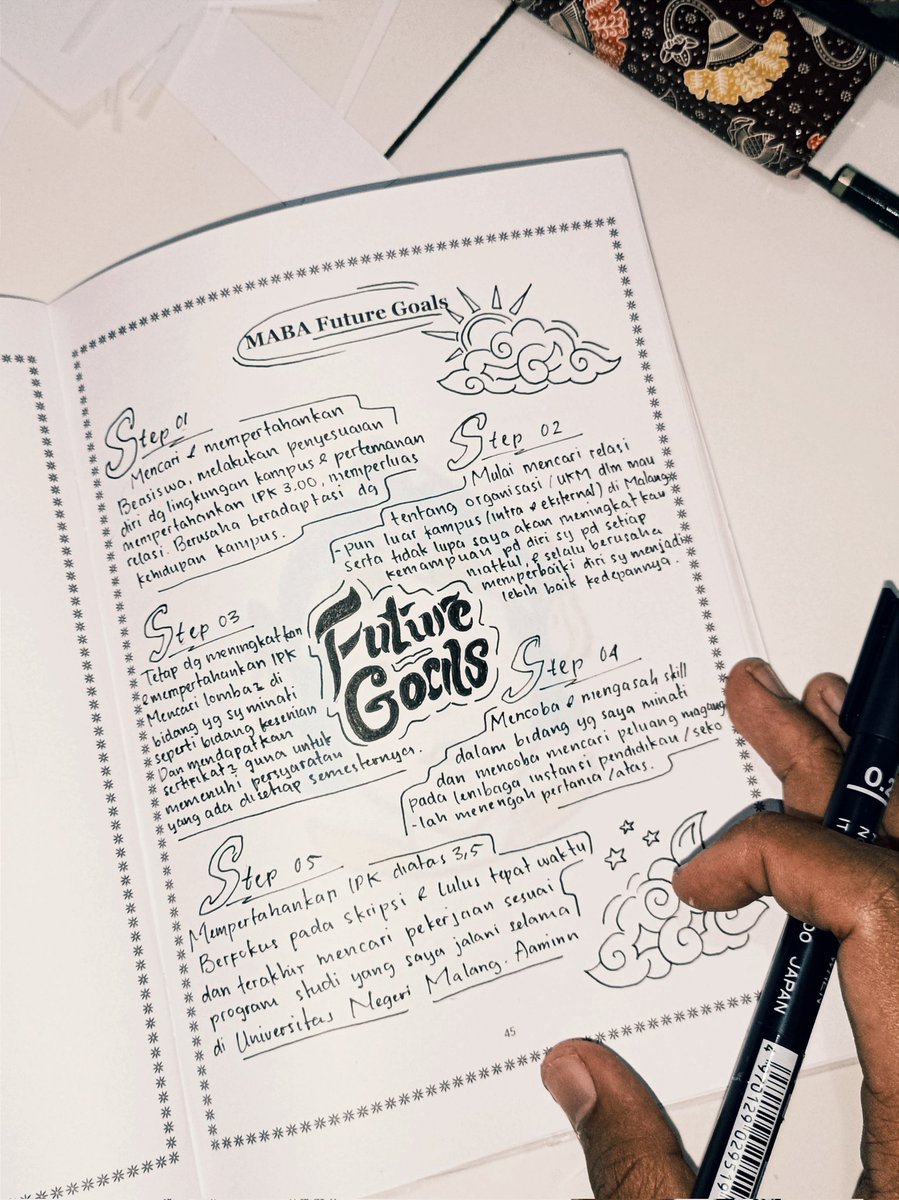 MABA Future Goals
Step 01
Mencari & mempertahankan
Beasiswa, melakukan penyesuaian
diri dg lingkungan kampus & pertemanan
mempertahankan IPK 3.00, memperluas
relasi. Berusaha beradaptasi dg
kehidupan kampus.
Step 02
Mulai mencari relasi
tentang organisasi/UKM dlm mau
-pun luar kampus (intra & eksternal) di Malang
serta tidak lupa saya akan meningkatkan
kemampuan pd diri sy pd setiap
matkul, & selalu berusaha
memperbaiki diri sy menjadi
lebih baik kedepannya.
Step 03
Tetap dg meningkatkan
& mempertahankan IPK
Mencari lomba2 di
bidang yg sy minati
seperti bidang kesenian
Dan mendapatkan
sertifikat2 guna untuk
memenuhi persyaratan
yang ada disetiap semesternya.
Future
Goals
Step 04
Mencoba & mengasah skill
dalam bidang yg saya minati
dan mencoba mencari peluang magang
pada lembaga instansi pendidikan/seko
-lah menengah pertama/atas.
Step 05
Mempertahankan IPK diatas 3,5
Berfokus pada skripsi & Lulus tepat waktu
dan terakhir mencari pekerjaan sesuai
program studi yang saya jalani selama
di Universitas Negeri Malang. Aaminn
45
0.2
JAPAN
4970129029519